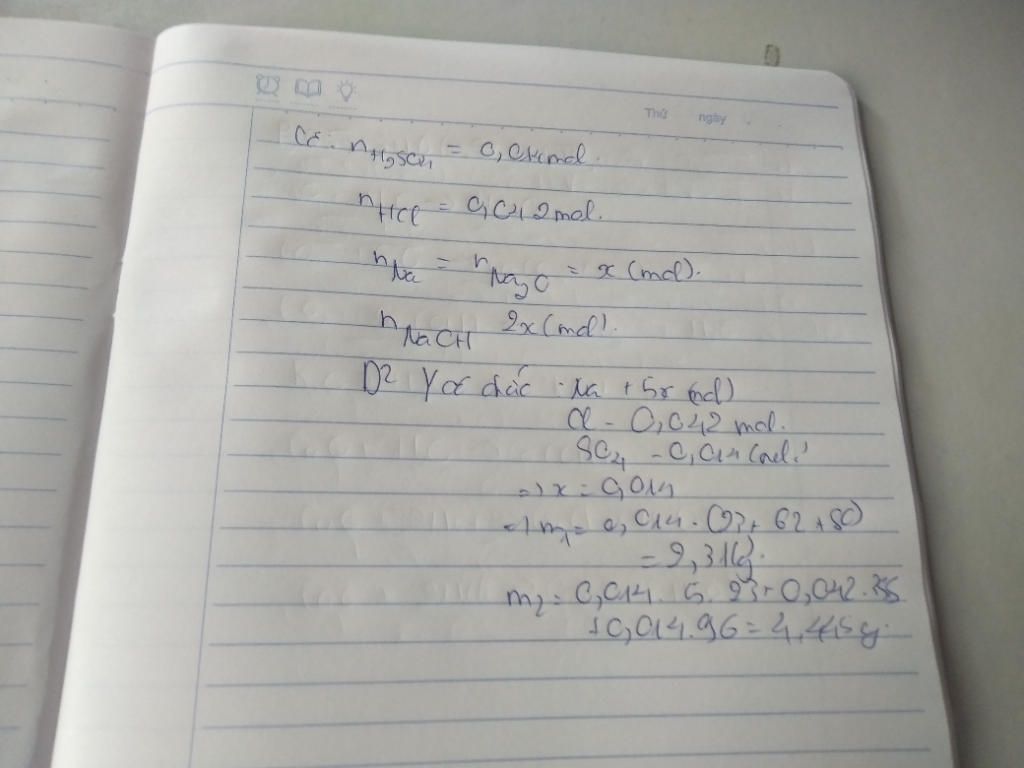 Thứ ngày
Có: nH2SO4 = 0,014 mol.
nHCl = 0,042 mol.
nNa = nNa2O = x (mol).
nNaOH 2x (mol).
D2 Y có chứa: Na + 5x mol)
Cl - 0,042 mol.
SO4 - 0,014 (mol.)
=> x = 0,014
=> m1 = 0,014. (23 + 62 + 80)
= 2,31(g).
m2 = 0,014. 5. 23 + 0,042.
+ 0,014.96 = 4,445 g.